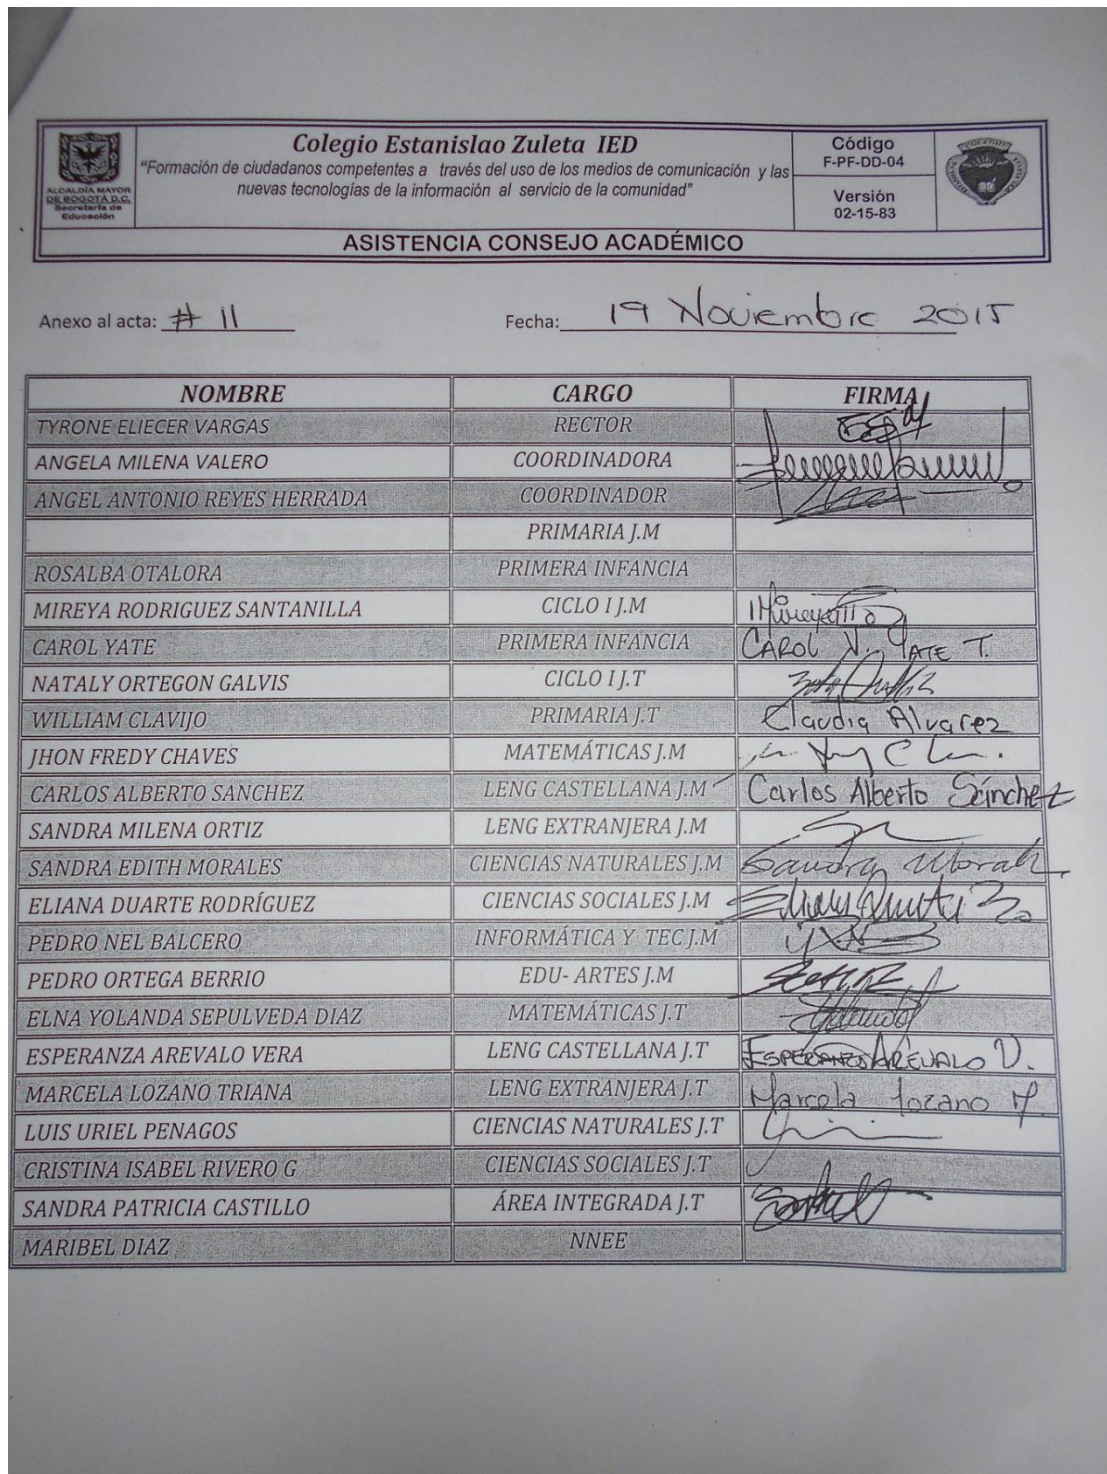 ALCALDÍA MAYOR
DE BOGOTÁ D.C.
Secretaría de
Educación
Colegio Estanislao Zuleta IED
"Formación de ciudadanos competentes a través del uso de los medios de comunicación y las
nuevas tecnologías de la información al servicio de la comunidad"
Código
F-PF-DD-04
Versión
02-15-83
COLEGIO
ASISTENCIA CONSEJO ACADÉMICO
Anexo al acta: # 11 Fecha: 19 Noviembre 2015
NOMBRE CARGO FIRMA
TYRONE ELIECER VARGAS RECTOR
ANGELA MILENA VALERO COORDINADORA
ANGEL ANTONIO REYES HERRADA COORDINADOR
PRIMARIA J.M
ROSALBA OTALORA PRIMERA INFANCIA
MIREYA RODRIGUEZ SANTANILLA CICLO I J.M
CAROL YATE PRIMERA INFANCIA CAROL V. YATE T.
NATALY ORTEGON GALVIS CICLO I J.T
WILLIAM CLAVIJO PRIMARIA J.T Claudia Alvarez
JHON FREDY CHAVES MATEMÁTICAS J.M
CARLOS ALBERTO SANCHEZ LENG CASTELLANA J.M Carlos Alberto Sánchez
SANDRA MILENA ORTIZ LENG EXTRANJERA J.M
SANDRA EDITH MORALES CIENCIAS NATURALES J.M Sandra Morales
ELIANA DUARTE RODRÍGUEZ CIENCIAS SOCIALES J.M
PEDRO NEL BALCERO INFORMÁTICA Y TEC J.M
PEDRO ORTEGA BERRIO EDU- ARTES J.M
ELNA YOLANDA SEPULVEDA DIAZ MATEMÁTICAS J.T
ESPERANZA AREVALO VERA LENG CASTELLANA J.T ESPERANZA AREVALO V.
MARCELA LOZANO TRIANA LENG EXTRANJERA J.T Marcela lozano
LUIS URIEL PENAGOS CIENCIAS NATURALES J.T
CRISTINA ISABEL RIVERO G CIENCIAS SOCIALES J.T
SANDRA PATRICIA CASTILLO ÁREA INTEGRADA J.T
MARIBEL DIAZ NNEE